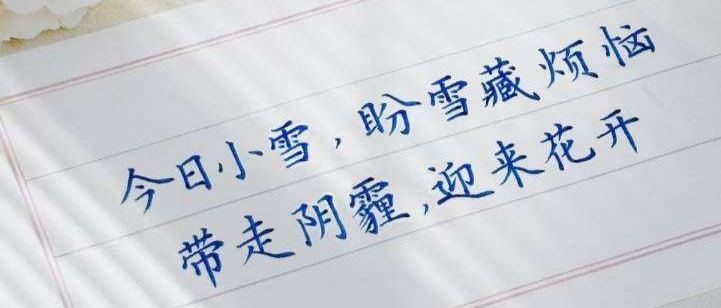 今日小雪，盼雪藏烦恼
带走阴霾，迎来花开